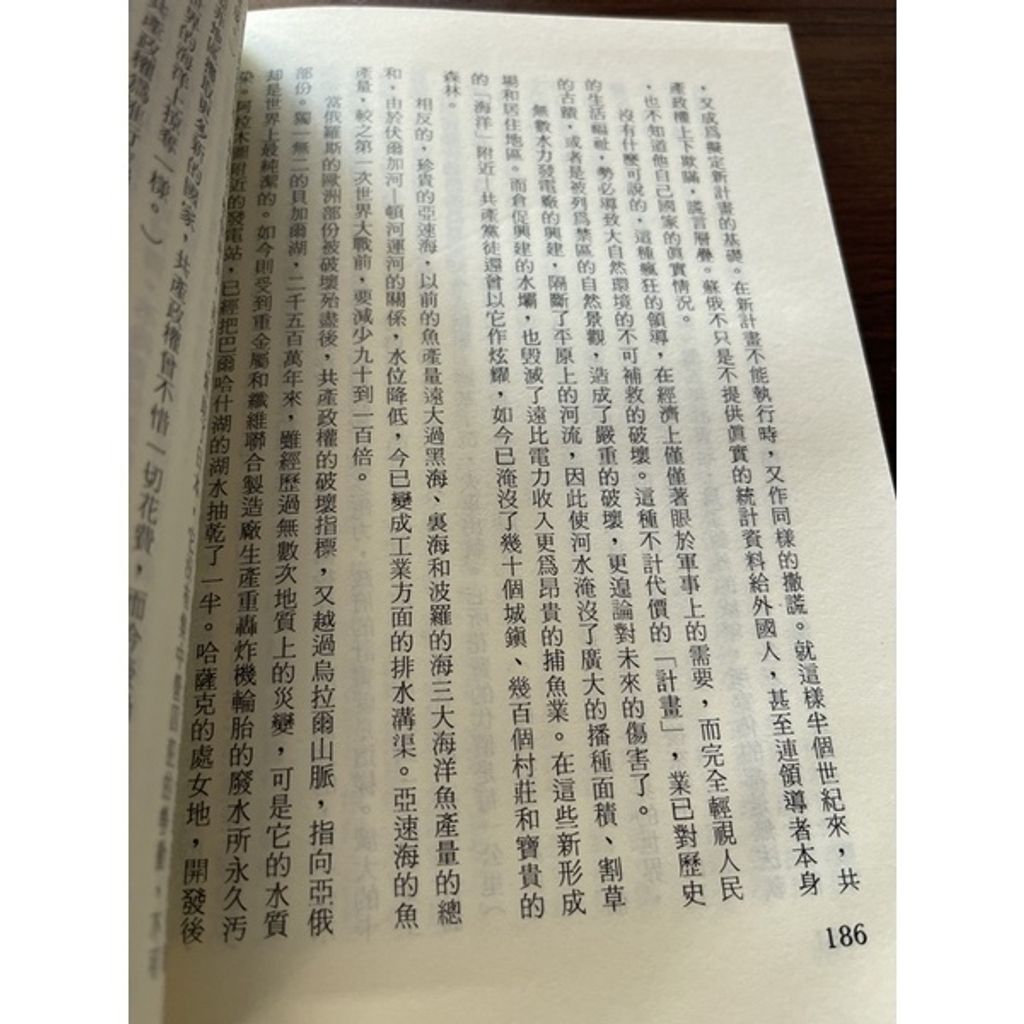 ，又成爲擬定新計畫的基礎。在新計畫不能執行時，又作同樣的撒謊。就這樣半個世紀來，共
產政權上下欺瞞，謊言層疊。蘇俄不只是不提供眞實的統計資料給外國人，甚至連領導者本身
，也不知道他自己國家的眞實情況。
沒有什麼可說的，這種瘋狂的領導，在經濟上僅僅著眼於軍事上的需要，而完全輕視人民
的生活福祉，勢必導致大自然環境的不可補救的破壞。這種不計代價的「計畫」，業已對歷史
的古蹟，或者是被列爲禁區的自然景觀，造成了嚴重的破壞，更遑論對未來的傷害了。
無數水力發電廠的興建，隔斷了平原上的河流，因此使河水淹沒了廣大的播種面積、割草
場和居住地區。而倉促興建的水壩，也毀滅了遠比電力收入更爲昂貴的捕魚業。在這些新形成
的「海洋」附近—共產黨徒還曾以它作炫耀，如今已淹沒了幾十個城鎭、幾百個村莊和寶貴的
森林。
相反的，珍貴的亞速海，以前的魚產量遠大過黑海、裏海和波羅的海三大海洋魚產量的總
和，由於伏爾加河—頓河運河的關係，水位降低，今已變成工業方面的排水溝渠。亞速海的魚
產量，較之第一次世界大戰前，要減少九十到一百倍。
當俄羅斯的歐洲部份被破壞殆盡後，共產政權的破壞指標，又越過烏拉爾山脈，指向亞俄
部份。獨一無二的貝加爾湖，二千五百萬年來，雖經歷過無數次地質上的災變，可是它的水質
却是世界上最純潔的。如今則受到重金屬和纖維聯合製造廠生產重轟炸機輪胎的廢水所永久汚
染。阿拉木圖附近的發電站，已經把巴爾哈什湖的湖水抽乾了一半。哈薩克的處女地，開發後
186
，共產政權曾不惜一切花費，而今
界的海洋上掠奪一樣。）
共產政權爲